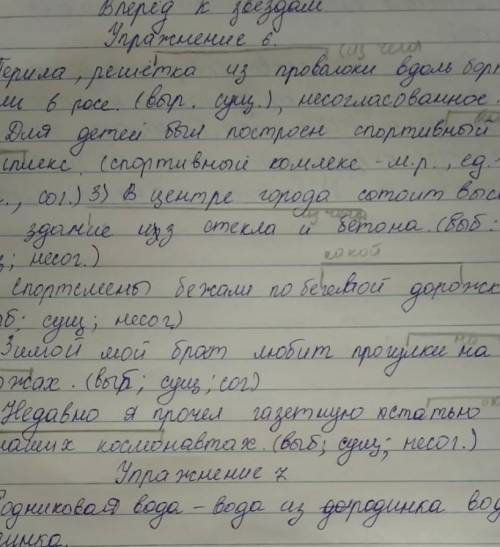 Вперед к звездам
Упражнение 6.
из чего
Перила, решётка из проволоки вдоль борт
ли 6 росе. (выр. сущ.), несогласованное
Для детей был построен спортивный
мплекс. (спортивный комлекс - м.р., ед.
., сог.) 3) В центре города сотоит выс
из чего
здание из стекла и бетона. (выб:
щ; несог.)
какой
Спортсмены бежали по беговой дорожк
б; сущ; несог)
на
Зимой мой брат любит прогулки на
ожах. (выр; сущ; сог)
Недавно я прочел газетную статью о
наших космонавтах. (выб; сущ; несог.)
Упражнение 7
Родниковая вода - вода из родинка вод
динка.